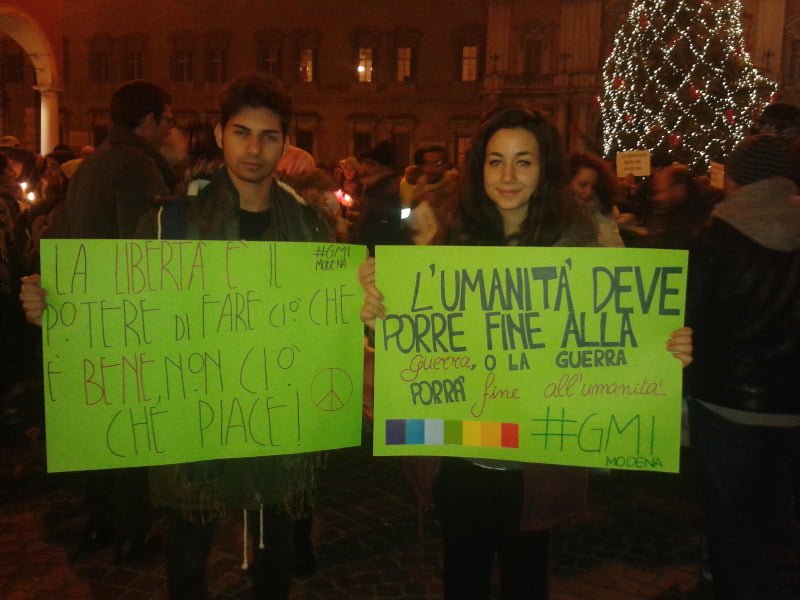 LA LIBERTÀ E' IL
#GMI
MODENA
POTERE DI FARE CIO' CHE
È BENE, NON CIO'
CHE PIACE!
L'UMANITA' DEVE
PORRE FINE ALLA
guerra, O LA GUERRA
PORRA' fine all'umanita'.
#GMI
MODENA